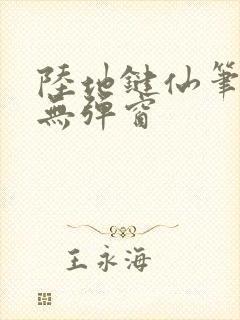 陸地鍵仙筆
無彈窗
王永海